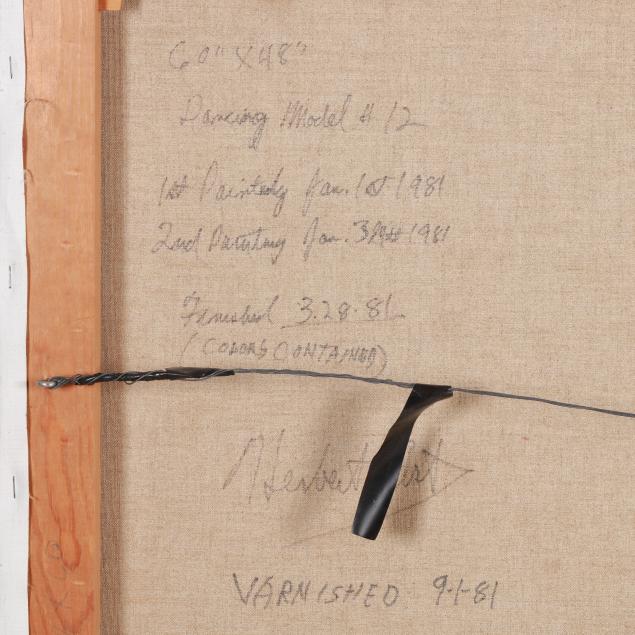 60" X 48"
Dancing Model # 12
1st Painting Jan. 1st 1981
2nd Painting Jan. 31st 1981
Finished 3.28.81
(COLORS CONTAINED)
Herbert
VARNISHED 9-1-81